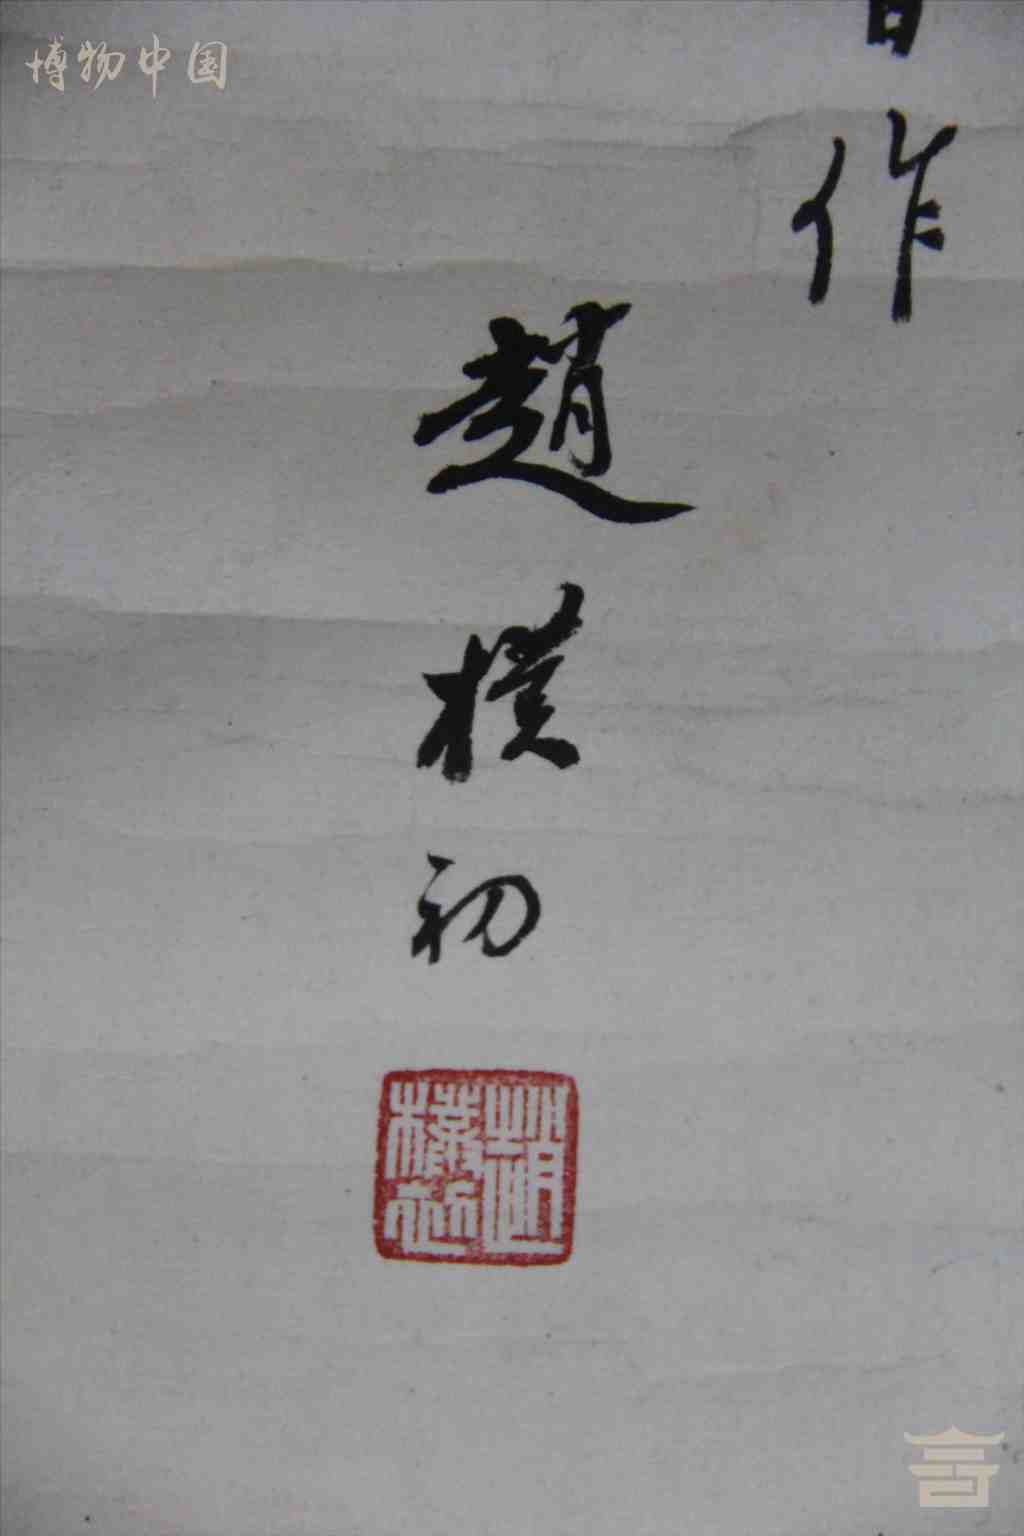 博物中国
作
趙樸初
趙樸初